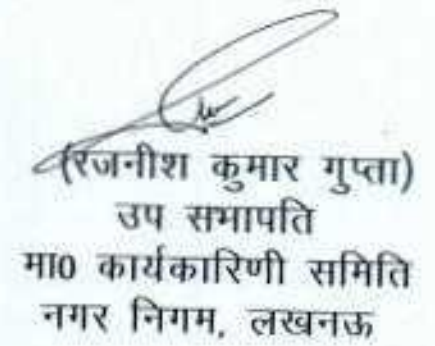 (रजनीश कुमार गुप्ता)
उप सभापति
मा0 कार्यकारिणी समिति
नगर निगम, लखनऊ